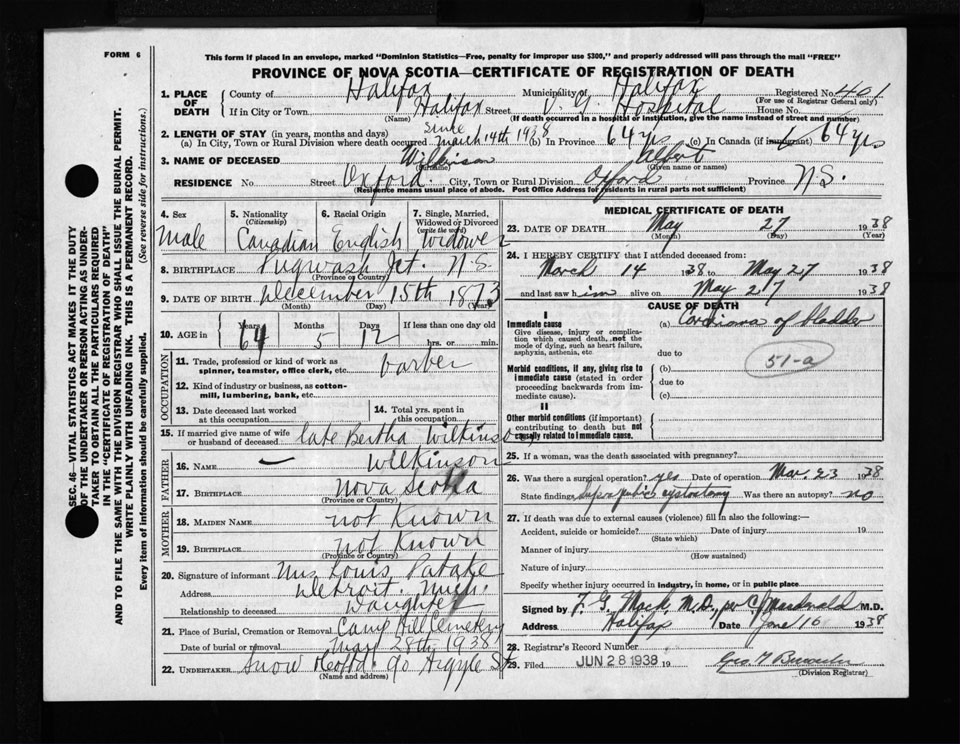 FORM 6
This form if placed in an envelope, marked "Dominion Statistics—Free, penalty for improper use $300," and properly addressed will pass through the mail "FREE"
PROVINCE OF NOVA SCOTIA—CERTIFICATE OF REGISTRATION OF DEATH
1. PLACE OF DEATH
County of Halifax Municipality of Halifax Registered No. 401
(For use of Registrar General only)
If in City or Town Halifax Street V. G. Hospital House No.
(Name) (If death occurred in a hospital or institution, give the name instead of street and number)
2. LENGTH OF STAY (in years, months and days)
(a) In City, Town or Rural Division where death occurred Since March 14th 1938 (b) In Province 64 yrs (c) In Canada (if immigrant) 64 yrs
3. NAME OF DECEASED Wilkinson Albert
(Surname) (Given name or names)
RESIDENCE No Street Oxford. City, Town or Rural Division Oxford Province N.S.
(Residence means usual place of abode. Post Office Address for residents in rural parts not sufficient)
SEC. 46—VITAL STATISTICS ACT MAKES IT THE DUTY
OF THE UNDERTAKER OR PERSON ACTING AS UNDERTAKER
TO OBTAIN ALL THE PARTICULARS REQUIRED
IN THE "CERTIFICATE OF REGISTRATION OF DEATH"
AND TO FILE THE SAME WITH THE DIVISION REGISTRAR WHO SHALL ISSUE THE BURIAL PERMIT.
WRITE PLAINLY WITH UNFADING INK. THIS IS A PERMANENT RECORD.
Every item of information should be carefully supplied. (See reverse side for instructions.)
4. Sex Male
5. Nationality (Citizenship) Canadian
6. Racial Origin English
7. Single, Married, Widowed or Divorced (write the word) Widower
8. BIRTHPLACE Pugwash Jct. N.S.
(Province or Country)
9. DATE OF BIRTH December 15th 1873
(Month) (Day) (Year)
10. AGE in Years 64 Months 5 Days 12 If less than one day old
hrs. or min.
OCCUPATION
11. Trade, profession or kind of work as spinner, teamster, office clerk, etc. barber
12. Kind of industry or business, as cotton-mill, lumbering, bank, etc.
13. Date deceased last worked at this occupation
14. Total yrs. spent in this occupation
15. If married give name of wife or husband of deceased late Bertha Wilkinson
FATHER
16. NAME Wilkinson
17. BIRTHPLACE Nova Scotia
(Province or Country)
MOTHER
18. MAIDEN NAME not Known
19. BIRTHPLACE not Known
(Province or Country)
20. Signature of informant Mrs Louis
Address Detroit. Mich.
Relationship to deceased Daughter
21. Place of Burial, Cremation or Removal Camp Hill Cemetery
Date of burial or removal May 28th 1938
22. UNDERTAKER Snow 90 Argyle St
(Name and address)
MEDICAL CERTIFICATE OF DEATH
23. DATE OF DEATH May 27 1938
(Month) (Day) (Year)
24. I HEREBY CERTIFY that I attended deceased from:
March 14 1938 to May 27 1938
and last saw him alive on May 27 1938
CAUSE OF DEATH
I
Immediate cause
Give disease, injury or complication which caused death, not the mode of dying, such as heart failure, asphyxia, asthenia, etc.
(a) of bladder
due to
51-a
Morbid conditions, if any, giving rise to immediate cause (stated in order proceeding backwards from immediate cause).
(b)
due to
(c)
II
Other morbid conditions (if important) contributing to death but not causally related to immediate cause.
25. If a woman, was the death associated with pregnancy?
26. Was there a surgical operation? yes Date of operation Mar. 23 1938
State findings Suprapubic cystostomy Was there an autopsy? no
27. If death was due to external causes (violence) fill in also the following:—
Accident, suicide or homicide? Date of injury 19
(State which)
Manner of injury
(How sustained)
Nature of injury
Specify whether injury occurred in industry, in home, or in public place
Signed by F. G. Mack, M.D., per C. Macdonald M.D.
Address Halifax Date June 16 1938
28. Registrar's Record Number
29. Filed JUN 28 1938 19
(Division Registrar)